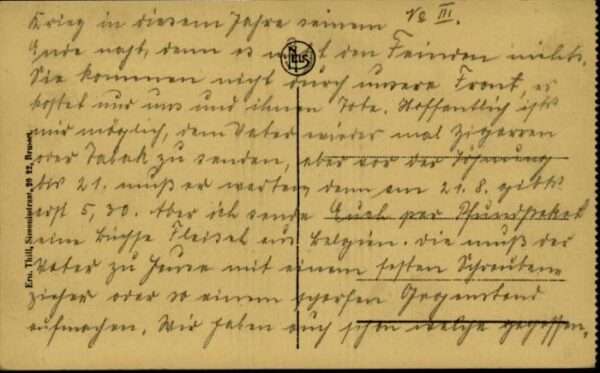 No III.
Krieg in diesem Jahre seinem
Ende naht, denn es nützt den Feinden nichts.
Sie kommen nicht durch unsere Front, es
kostet nur uns und ihnen Tote. Hoffentlich ist's
mir möglich, dem Vater wieder mal Zigarren
oder Tabak zu senden, aber vor der Löhnung
bis 21. muß er warten, denn am 21. 8. gibt's
erst 5,30. Aber ich sende Euch per Pfundpaket
eine Büchse Fleisch aus Belgien. Die muß der
Vater zu Hause mit einem festen Schrauben-
zieher oder so einem scharfen Gegenstand
aufmachen. Wir haben auch schon welche gegessen.
NELS
Ern. Thill, Bruxel.